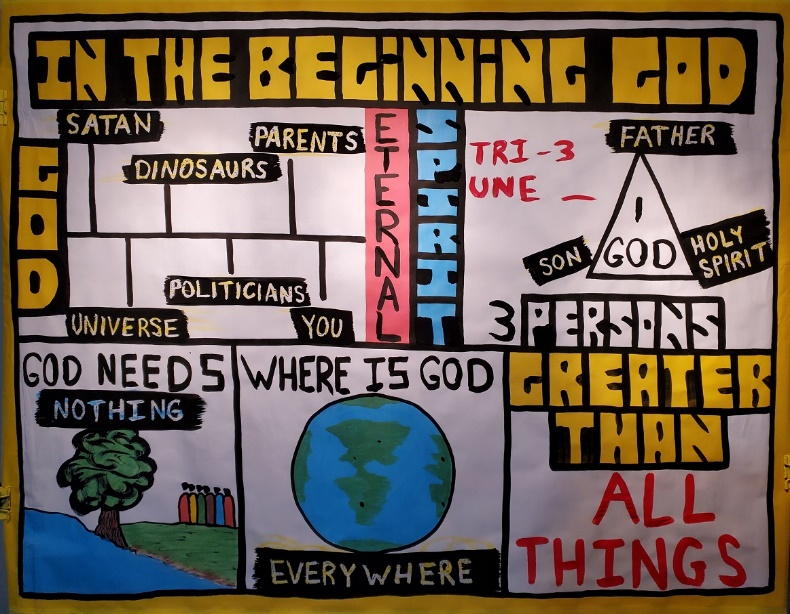 IN THE BEGINNING GOD
GOD
SATAN
PARENTS
DINOSAURS
POLITICIANS
UNIVERSE
YOU
ETERNAL
SPIRIT
TRI-3
UNE _
FATHER
1
GOD
SON
HOLY
SPIRIT
3 PERSONS
GOD NEEDS
NOTHING
WHERE IS GOD
EVERYWHERE
GREATER
THAN
ALL
THINGS